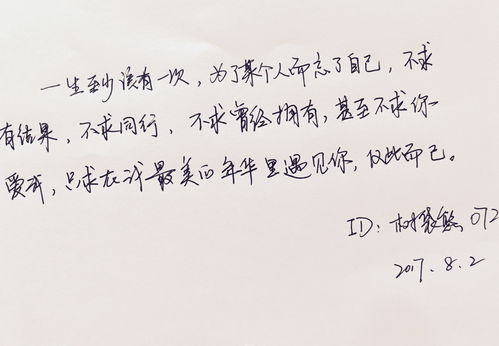 一生至少该有一次，为了某个人而忘了自己，不求
有结果，不求同行，不求曾经拥有，甚至不求你
爱我，只求在我最美的年华里遇见你，仅此而已。
ID：树袋熊072
2017.8.2